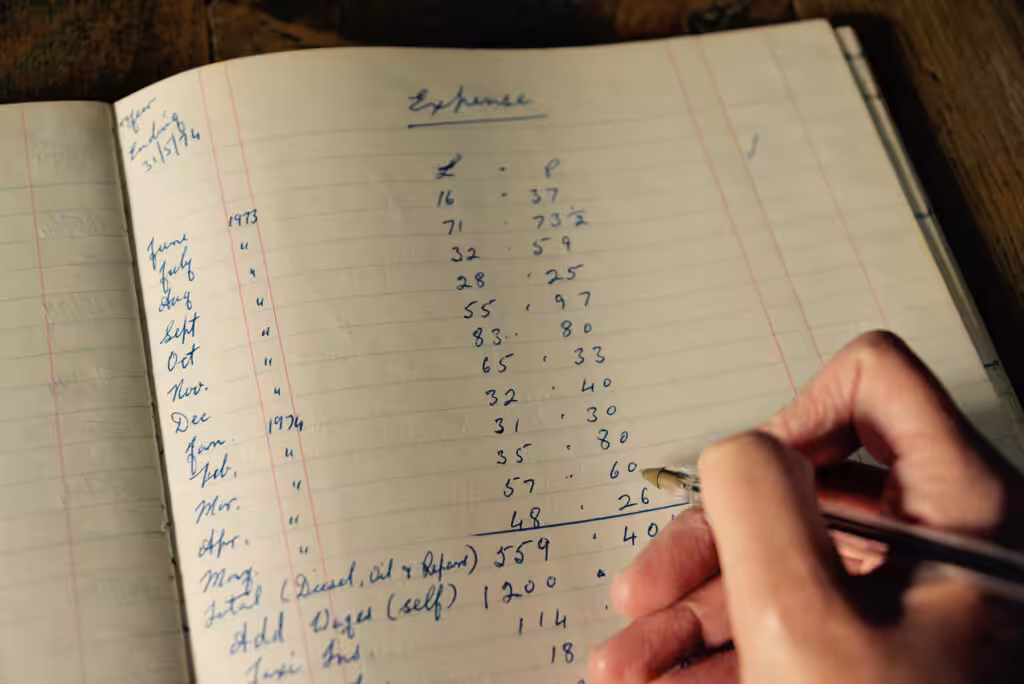 Year
Ending
31/5/74
Expense
£ . P
June 1973 16 . 37
July " 71 73½
Aug " 32 . 59
Sept " 28 . 25
Oct " 55 . 97
Nov. " 83 . 80
Dec " 65 . 33
Jan. 1974 32 . 40
Feb. " 31 . 30
Mar. " 35 . 80
Apr. " 57 . 60
May " 48 . 26
Total (Diesel, Oil & Repairs) 559 . 40
Add Wages (self) 1200 .
Taxi Ins. 114 .
18